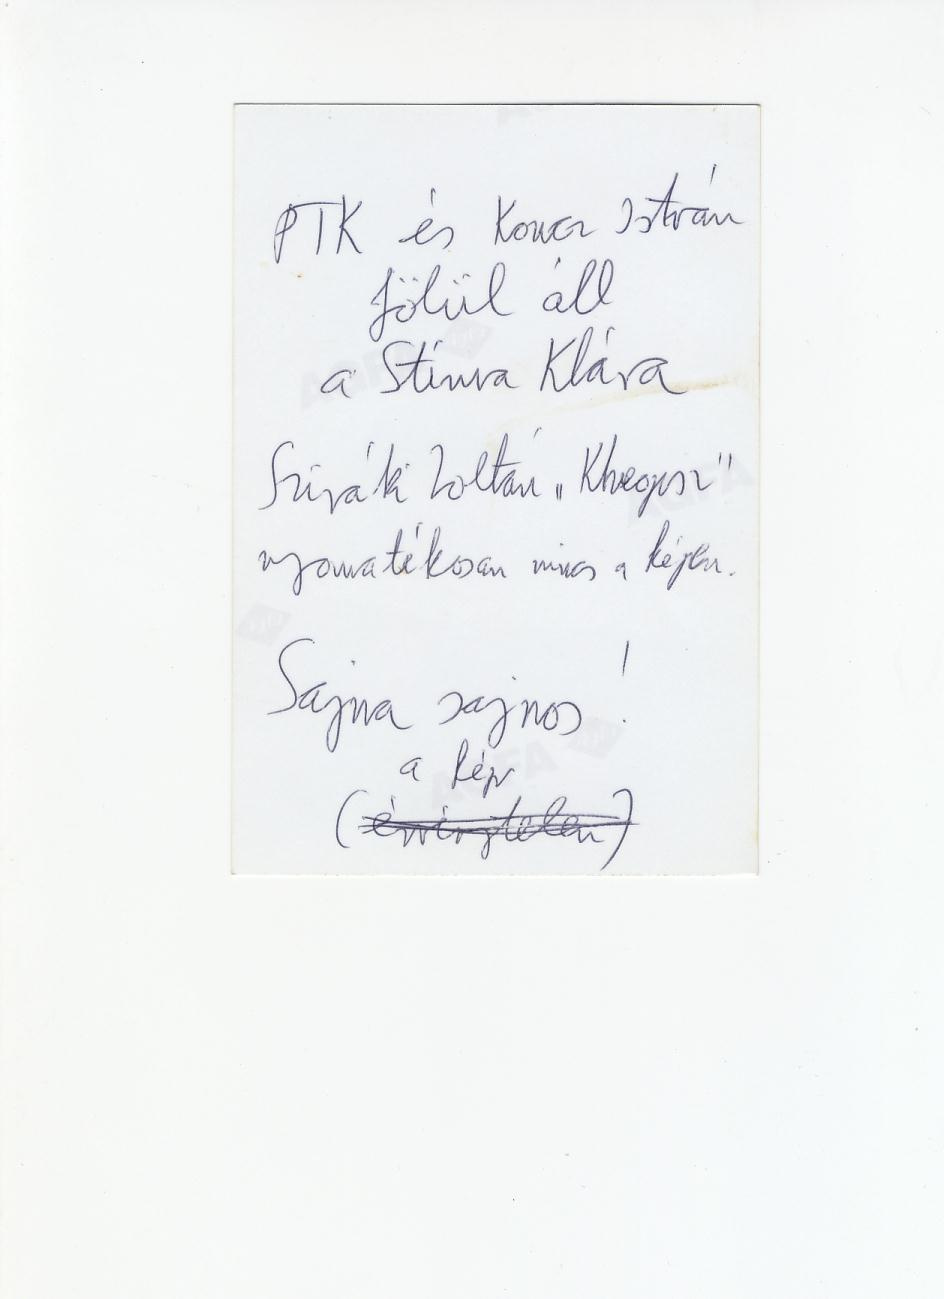 PTK és Koncz István
fölül áll
a Stinva Klára
Sziráki Zoltán „Khegysz"
nyomatékosan nincs a képen.
Sajna sajnos!
a kép
(érvénytelen)
AGFA
AGFA
AGFA